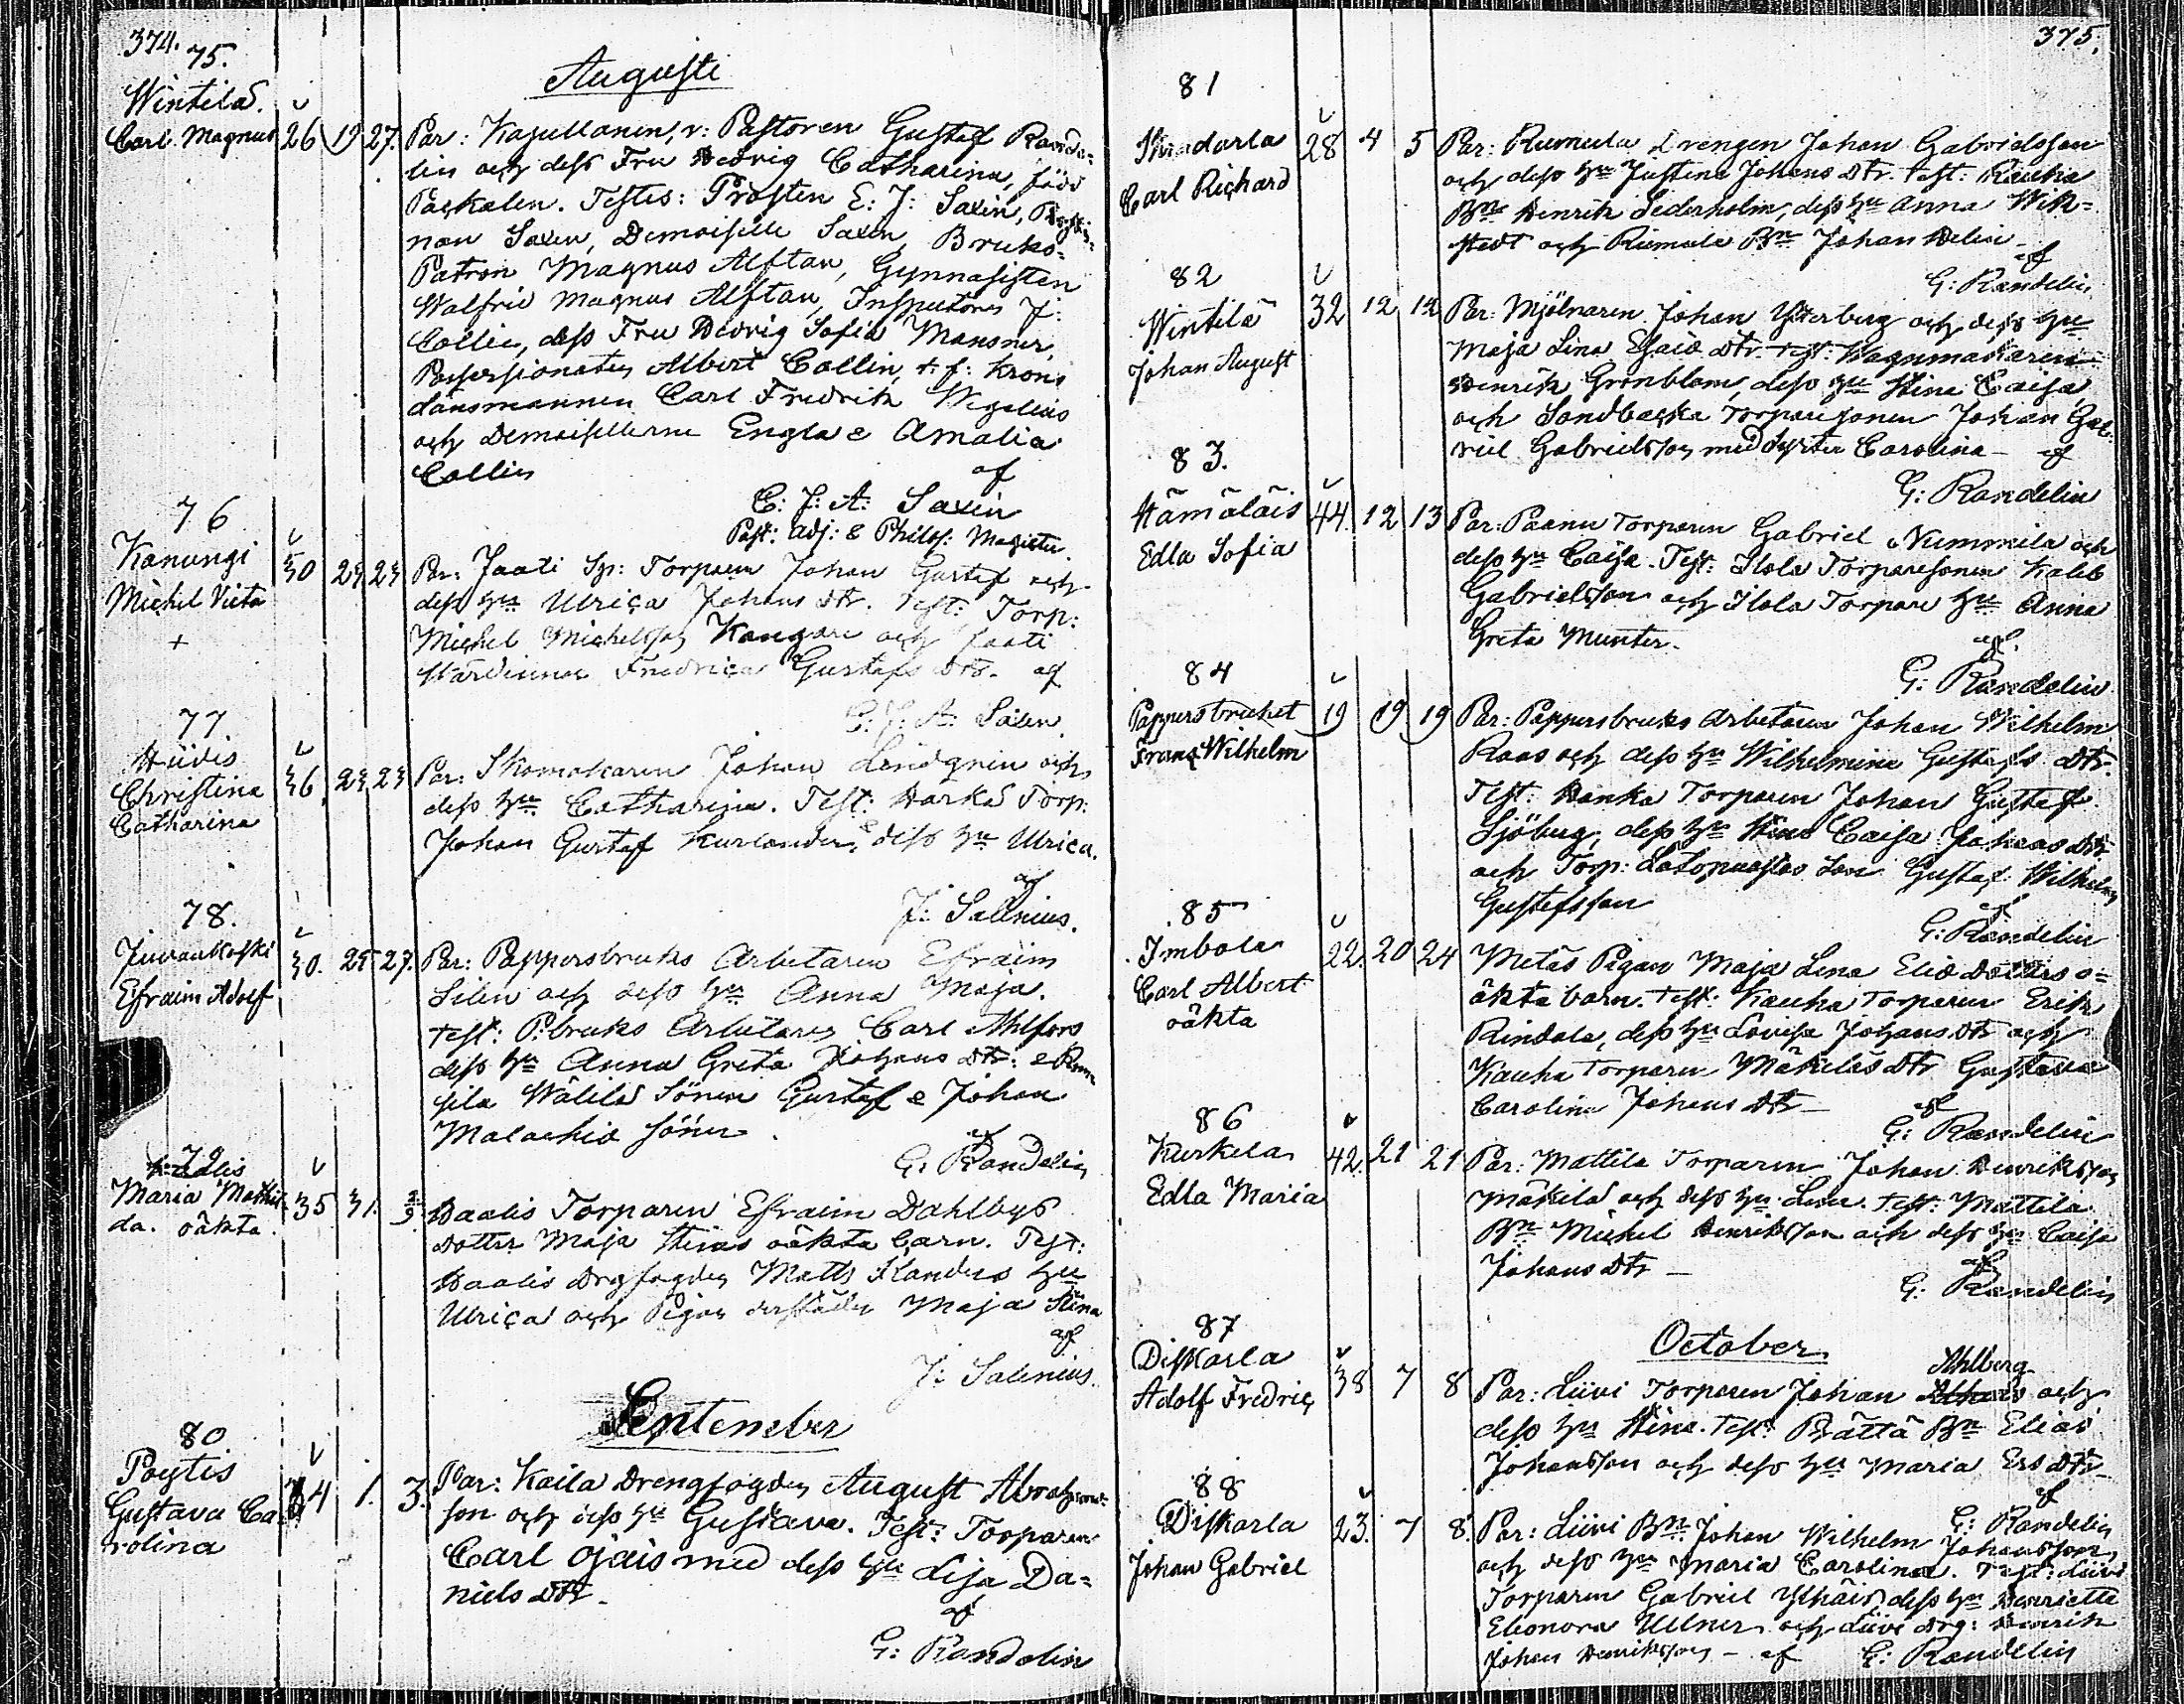 374.
75.
Augusti
Wintilä.
Carl Magnus 26 19 27. Par: Kapellanen, v: Pastoren Gustaf Rande=
lin och dess Fru Hedvig Catharina, född
Paskalen. Testes: Prosten E: J: Saxén,
nan Saxén, Demoiselle Saxén, Bruks=
Patron Magnus Alftan, Gymnasisten
Walfrid Magnus Alftan, Inspectoren J:
Collin, dess Fru Hedvig Sofia Mansner,
Possessionaten Albert Collin, t. f: Krono
länsmannen Carl Fredrik Wegelius
och Demoisellerne Engla & Amalia
Collin af
C: J: A: Saxén
Past: Adj: & Philos: Magister.
76
Kanungi
Michel Victor 30 23 23 Par: Jaati Sp: Torparen Johan Gustaf och
dess hu Ulrica Johans Dtr. Test: Torp:
Michel Michelsson Kangare och Jaati
Värdinnan Fredrica Gustafs Dtr. af
+
C: J: A: Saxén.
77.
Hiidis
Christina 36 23 23 Par: Skomakaren Johan Lindgren och
Catharina
dess hu Catharina. Test: Harka Torp:
Johan Gustaf Kurlander, dess hu Ulrica.
af
J: Salenius.
78.
Juvankoski
Efraim Adolf 30. 25 27. Par: Pappersbruks Arbetaren Efraim
Silen och dess hu Anna Maja.
Test: P:bruks Arbetaren Carl Ahlfors
dess hu Anna Greta Johans Dtr: &
Wälilä Sönen Gustaf & Johan
Malachias söner.
af
G: Randelin
79
Maria Mathil=
da. oäkta. 35 31. Haalis Torparen Efraim Dahlbys
dotter Maja Stinas oäkta barn. Test:
Haalis Drgfogden Matts Flanders hu
Ulrica och Pigan derstädes Maja Stina
af
J: Salenius.
September
80
Poytis
Gustava Ca= 34 1. 3. Par: Kaila Drengfogden August Abraham=
rolina
son och dess hu Gustava. Test: Torparen
Carl Ojais med dess hu Lisa Da=
niels Dtr.
af
G: Randelin
375.
81
Carl Richard 28 4 5 Par: Rumula Drengen Johan Gabrielsson
och dess hu Justina Johans Dtr. Test: Rauha
Bn Henrik Sederholm, dess hu Anna Wik=
stedt och Rumula Bn Johan Helin
af
G: Randelin
82
Wintilä
Johan August 32 12 12 Par: Mjölnaren Johan Ytterberg och dess hu
Maja Lina Esaias Dtr. Test: Wagnmakaren
Henrik Grönblom, dess hu Stina Caisa,
och Sandbacka Torparesonen Johan Gab=
riel Gabrielsson med syster Carolina - af
G: Randelin
83.
Hämäläis
Edla Sofia 44. 12 13 Par: Paanu Torparen Gabriel Nummila och
dess hu Caisa. Test: Ilola Torparesonen Kaleb
Gabrielsson och Ilola Torpare hu Anna
Greta Munter.
af.
G: Randelin
84
Pappersbruket
Frans Wilhelm 19 19 19 Par: Pappersbruks Arbetaren Johan Wilhelm
Roos och dess hu Wilhelmina Gustafs Dtr.
Test: Hanka Torparen Johan Gustaf
Sjöberg, dess hu Stina Caisa Johans Dtr
och Torp: son Gustaf Wilhelm
Gustafsson
af
G: Randelin
85
Imbola
Carl Albert
oäkta 22. 20 24 Metäs Pigan Maja Lena Elias Dotters o=
äkta barn. Test: Kauha Torparen Erik
Rindala, dess hu Lovisa Johans Dtr och
Kauha Torparen Mäkiläs Dtr Gustava
Carolina Johans Dtr
af
G: Randelin
86
Kurkela
Edla Maria 42. 21 21 Par: Mattila Torparen Johan Henriksson
Mäkilä och dess hu Lena. Test: Mattila
Bn Michel Henriksson och dess hu Caisa
Johans Dtr
af
G: Randelin
October
87
Diskarla
Adolf Fredric 38 7 8 Par: Liivi Torparen Johan Ahlberg och
dess hu Stina. Test: Prättä Bn Elias
Johansson och dess hu Maria Ers Dtr
af
G: Randelin
88
Diskarla
Johan Gabriel 23. 7 8. Par: Liivi Bn Johan Wilhelm Johansson
och dess hu Maria Carolina. Test: Liivi
Torparen Gabriel Ylhäis, dess hu Henrietta
Eleonora Ullner och Liivi Drg: Henrik
Johan Henriksson - af G: Randelin